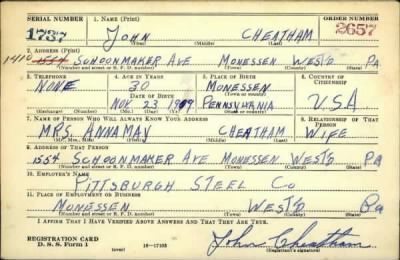 SERIAL NUMBER 1. NAME (Print) ORDER NUMBER
1737 JOHN CHEATHAM 2657
(First) (Middle) (Last)
2. ADDRESS (Print)
1410 1554 SCHOONMAKER AVE MONESSEN WEST'D PA
(Number and street or R. F. D. number) (Town) (County) (State)
3. TELEPHONE 4. AGE IN YEARS 5. PLACE OF BIRTH 6. COUNTRY OF CITIZENSHIP
NONE 30 MONESSEN
DATE OF BIRTH (Town or county)
NOV 23 1909 PENNSYLVANIA U.S.A.
(Exchange) (Number) (Mo.) (Day) (Yr.) (State or country)
7. NAME OF PERSON WHO WILL ALWAYS KNOW YOUR ADDRESS 8. RELATIONSHIP OF THAT PERSON
MRS. ANNAMAY CHEATHAM WIFE
(Mr., Mrs., Miss) (First) (Middle) (Last)
9. ADDRESS OF THAT PERSON
1554 SCHOONMAKER AVE MONESSEN WEST'D PA
(Number and street or R. F. D. number) (Town) (County) (State)
10. EMPLOYER'S NAME
PITTSBURGH STEEL CO
11. PLACE OF EMPLOYMENT OR BUSINESS
MONESSEN WEST'D Pa
(Number and street or R. F. D. number) (Town) (County) (State)
I AFFIRM THAT I HAVE VERIFIED ABOVE ANSWERS AND THAT THEY ARE TRUE.
REGISTRATION CARD
D. S. S. Form 1 (over) 16-17105 John Cheatham
(Registrant's signature)